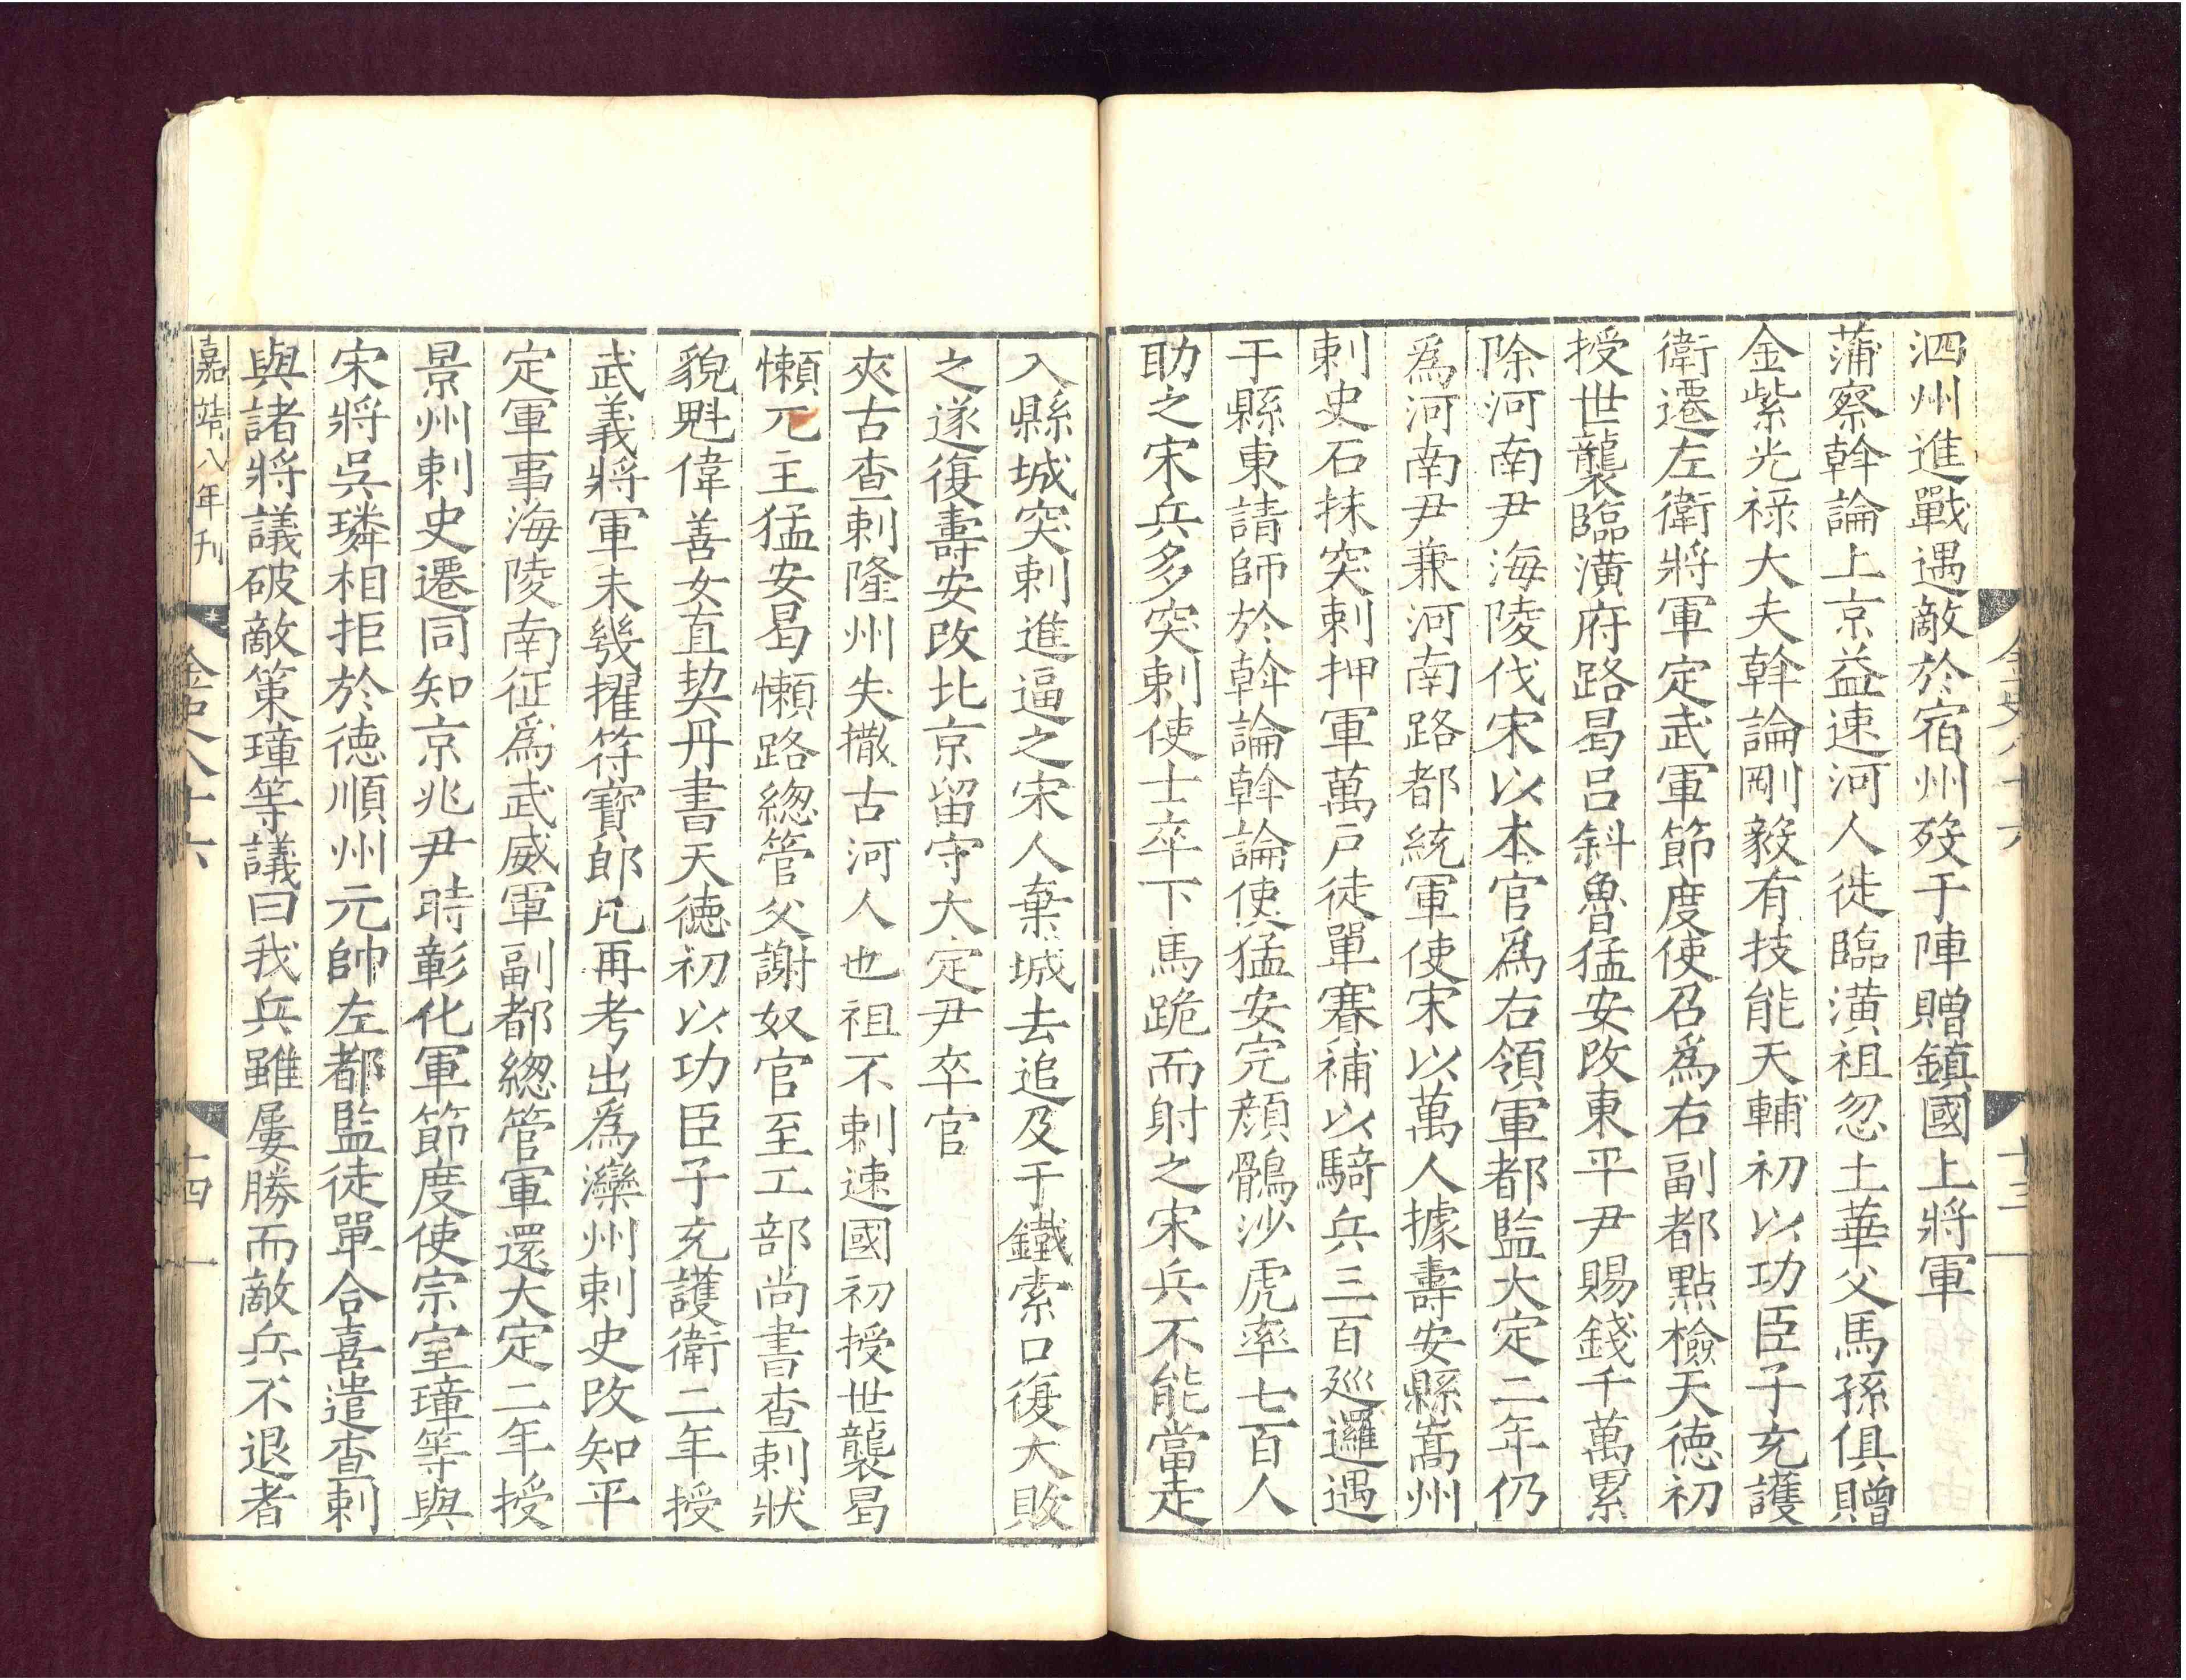 泗州進戰遇敵於宿州歿于陣贈鎮國上將軍
蒲察斡論上京益速河人徙臨潢祖忽土華父馬孫俱贈
金紫光祿大夫斡論剛毅有技能天輔初以功臣子充護
衛遷左衛將軍定武軍節度使召爲右副都點檢天德初
授世襲臨潢府路曷呂斜魯猛安改東平尹賜錢千萬累
除河南尹海陵伐宋以本官爲右領軍都監大定二年仍
爲河南尹兼河南路都統軍使宋以萬人據壽安縣嵩州
刺史石抹突剌押軍萬戶徒單賽補以騎兵三百巡邏遇
于縣東請師於斡論斡論使猛安完顏鶻沙虎率七百人
助之宋兵多突剌使士卒下馬跪而射之宋兵不能當走
金史八十六
十三
入縣城突剌進逼之宋人棄城去追及于鐵索口復大敗
之遂復壽安改北京留守大定尹卒官
夾古查剌隆州失撒古河人也祖不剌速國初授世襲曷
懶兀主猛安曷懶路總管父謝奴官至工部尚書查剌狀
貌魁偉善女直契丹書天德初以功臣子充護衛二年授
武義將軍未幾擢符寶郎凡再考出爲灤州刺史改知平
定軍事海陵南征爲武威軍副都總管軍還大定二年授
景州刺史遷同知京兆尹時彰化軍節度使宗室璋等與
宋將吳璘相拒於德順州元帥左都監徒單合喜遣查剌
與諸將議破敵策璋等議曰我兵雖屢勝而敵兵不退者
嘉靖八年刊
金史八十六
十四